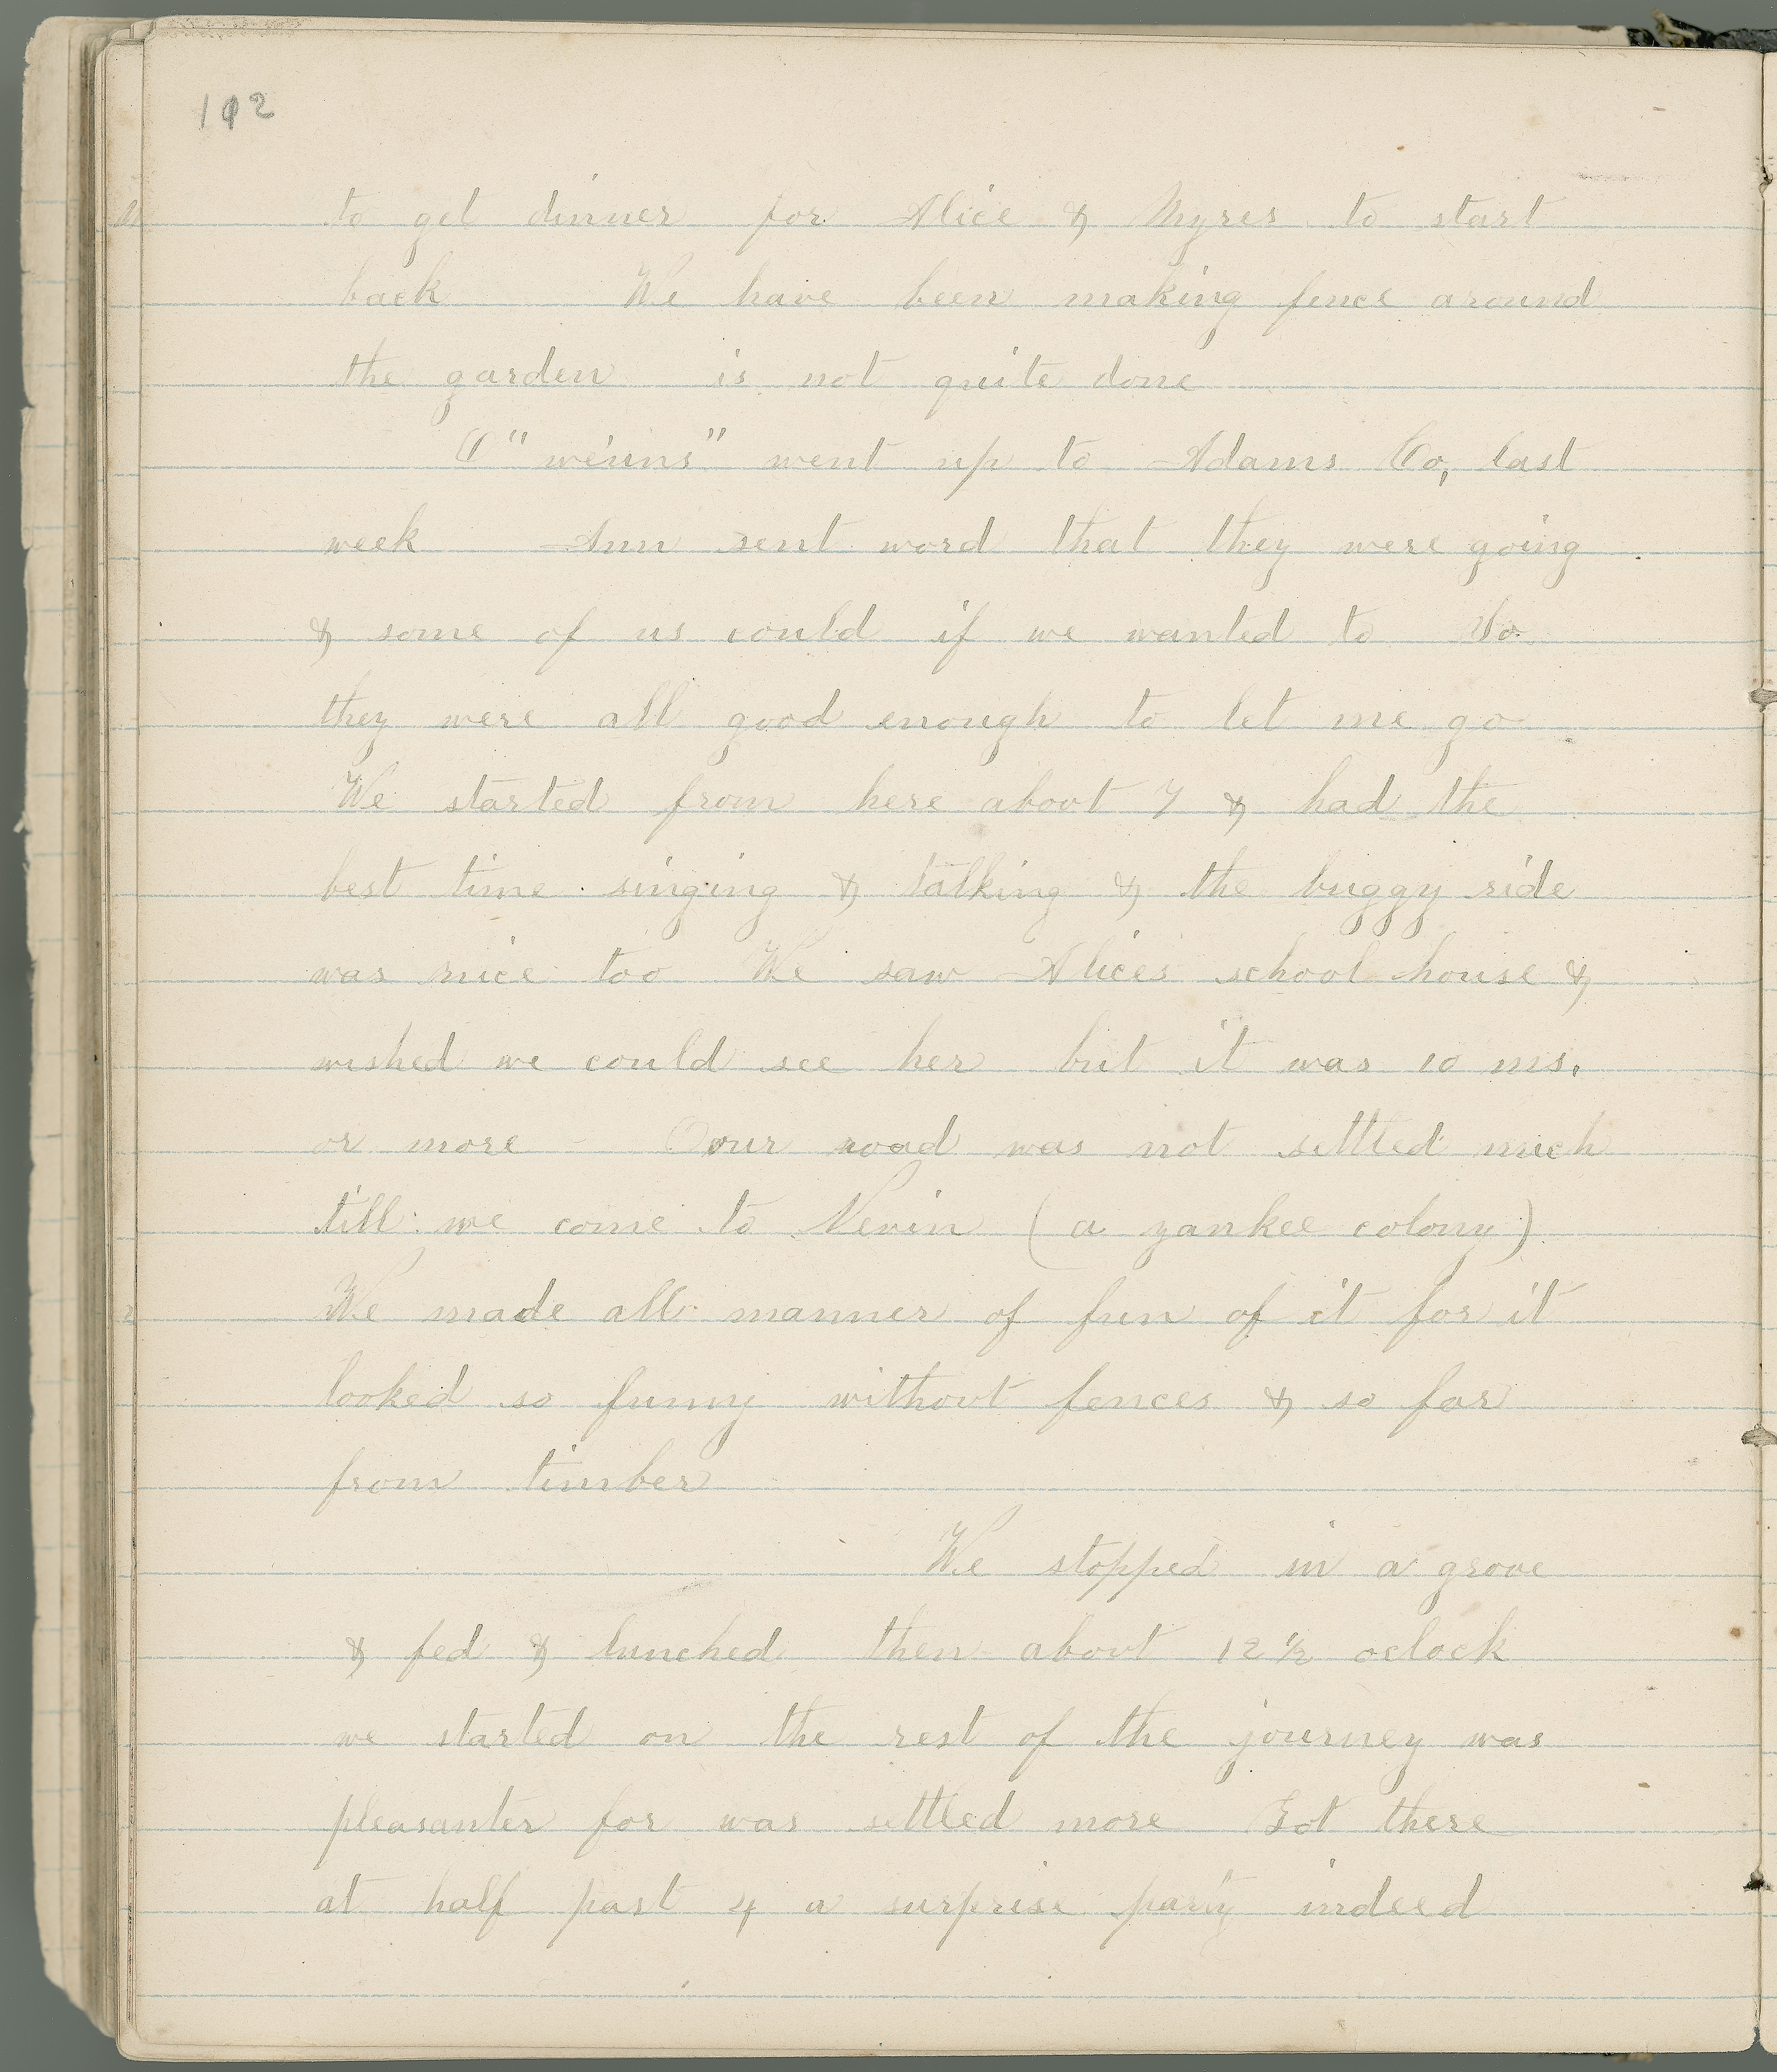 102
to get dinner for Alice & Myres to start
back We have been making fence around
the garden is not quite done
O "we'uns" went up to Adams Co, last
week Ann sent word that they were going
& some of us could if we wanted to So
they were all good enough to let me go
We started from here about 7 & had the
best time singing & talking & the buggy ride
was nice too We saw Alices school house &
wished we could see her but it was 10 ms.
or more Our road was not settled much
till we come to Nevin (a yankee colony)
We made all manner of fun of it for it
looked so funny without fences & so far
from timber
We stopped in a grove
& fed & lunched then about 12 1/2 oclock
we started on the rest of the journey was
pleasanter for was settled more Got there
at half past 4 a surprise party indeed